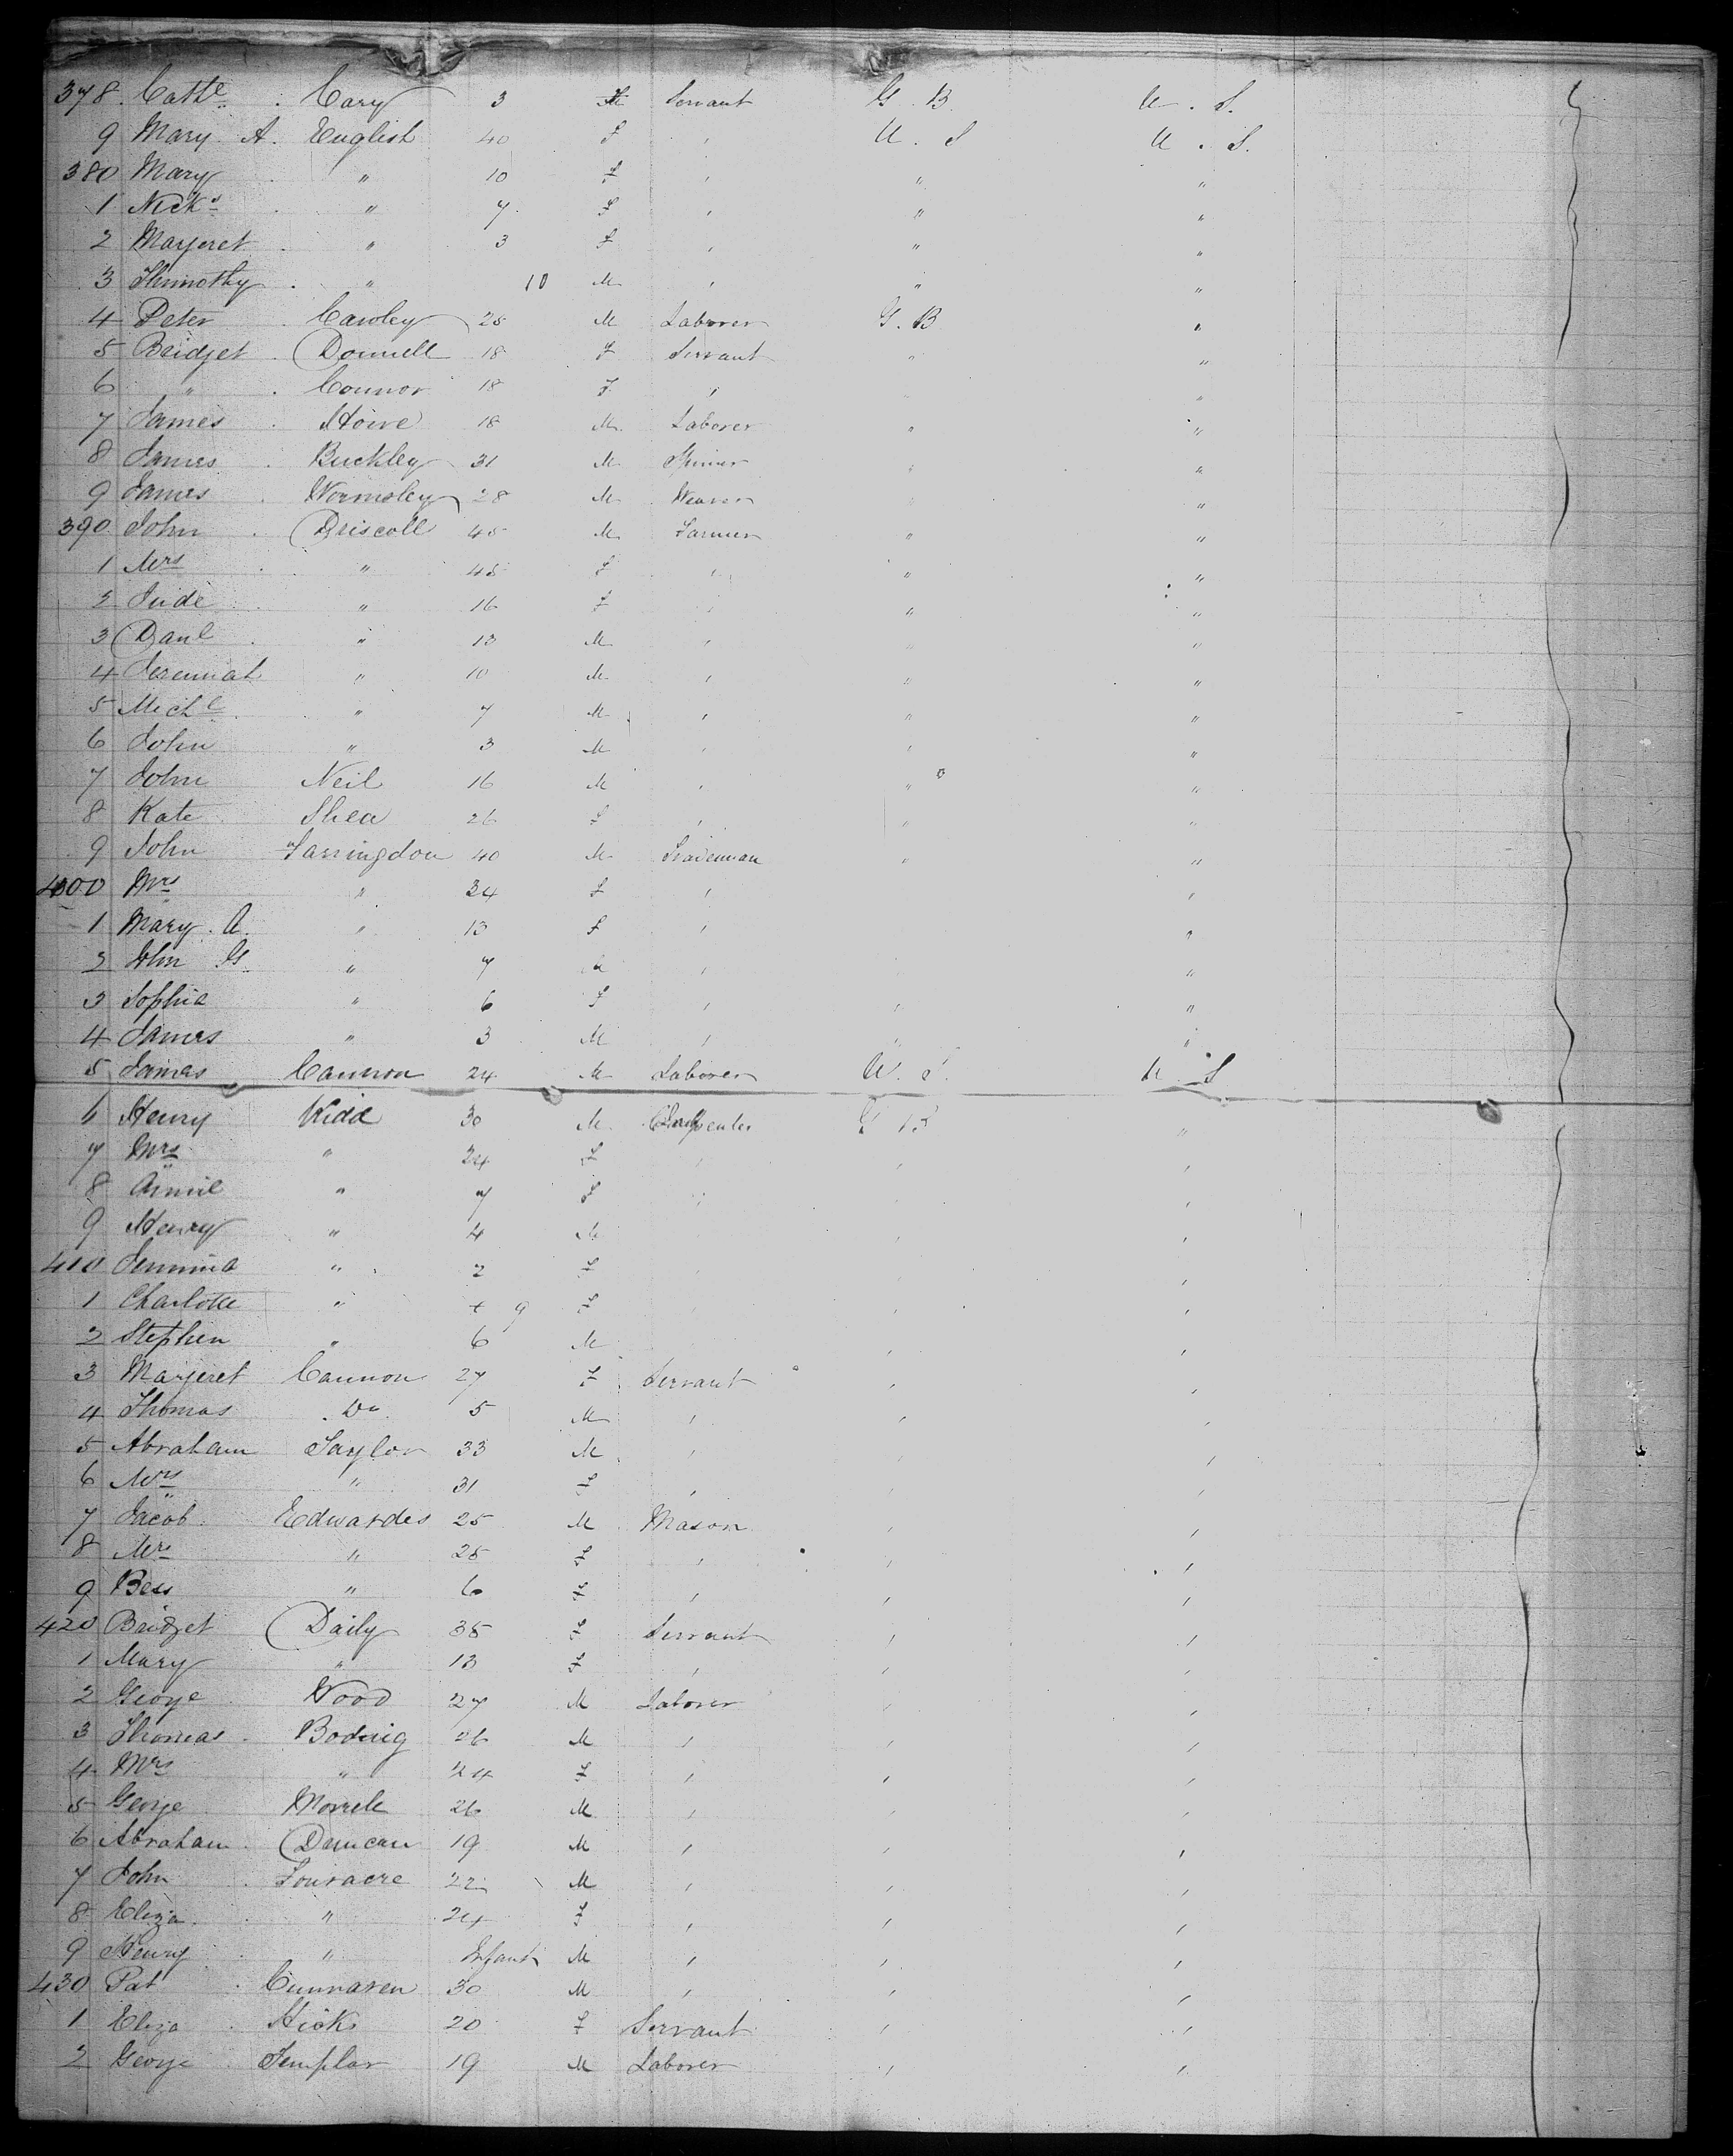 378 Cathe Cary 3 M Servant G. B. U. S.
9 Mary A. English 40 f " U. S U. S.
380 Mary " 10 f " " "
1 Nicks " 7 f " " "
2 Margeret " 3 f " " "
3 Thimothy " 10 M " " "
4 Peter Cawley 25 M Laborer G. B "
5 Bridget Donnell 18 f Servant " "
6 " Connor 18 f " " "
7 James Howe 18 M Laborer " "
8 James Buckley 31 M Spinner " "
9 James Wormsley 28 M Weaver " "
390 John Driscoll 45 M Farmer " "
1 Mrs " 45 f " " "
2 Jude " 16 f " " "
3 Danl " 13 M " " "
4 Jeremiah " 10 M " " "
5 Michl " 7 M " " "
6 John " 3 M " " "
7 John Neil 16 M " " "
8 Kate Shea 26 f " " "
9 John Farringdon 40 M Tradesman " "
400 Mrs " 34 f " "
1 Mary A. " 13 f " "
2 John G. " 7 " "
3 Sophia " 6 f " " "
4 James " 3 M " " "
5 James Cannon 24 M Laborer U. S. U. S
6 Henry Kidd 30 M Carpenter G B "
7 Mrs " 24 f " " "
8 Annie " 7 f " "
9 Henry " 4 M " "
410 Jemmina " 2 f " "
1 Charlotte " 9 f " "
2 Stephen " 6 M " "
3 Margeret Cannon 27 f Servant " "
4 Thomas Do 5 M " " "
5 Abraham Taylor 33 M " "
6 Mrs " 31 f " " "
7 Jacob Edwardes 25 M Mason " "
8 Mrs " 25 f " " "
9 Bess " 6 f " " "
420 Bridget Daily 35 f Servant " "
1 Mary " 13 f " " "
2 George Wood 27 M Laborer " "
3 Thomas Bodwig 26 M " " "
4 Mrs " 24 f " " "
5 George 26 M " " "
6 Abraham Duncan 19 M " " "
7 John Fouracre 22 M " " "
8 Eliza " 24 f " " "
9 Henry " Infant M " " "
430 Pat Cunnaren 30 M " " "
1 Eliza Hicks 20 f Servant " "
2 George Templar 19 M Laborer " "